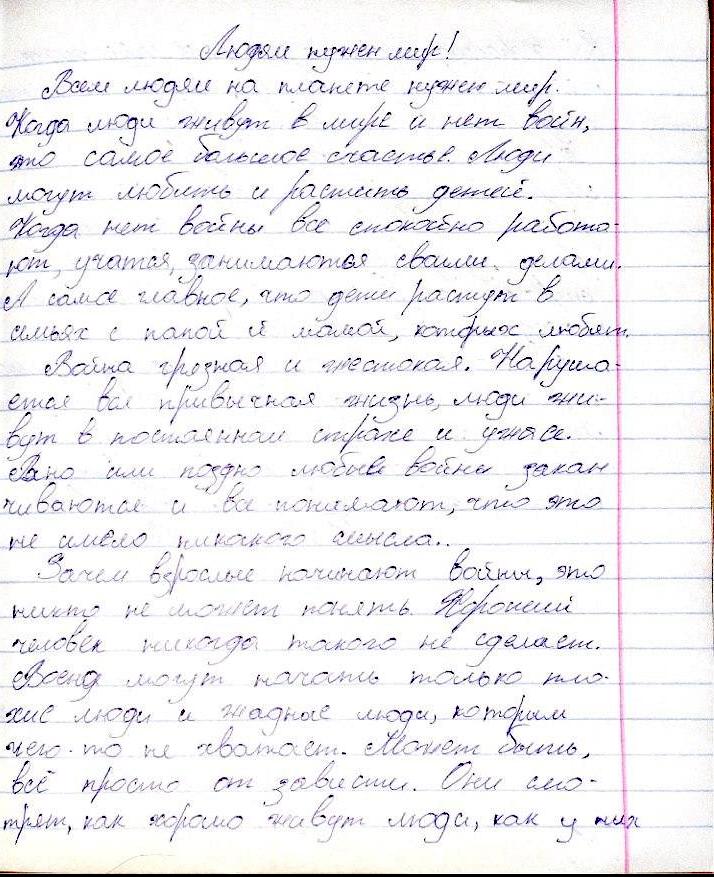 Людям нужен мир!
Всем людям на планете нужен мир.
Когда люди живут в мире и нет войн,
это самое большое счастье. Люди
могут любить и растить детей.
Когда нет войны все спокойно работа-
ют, учатся, занимаються своими делами.
А самое главное, что дети растут в
семьях с папой и мамой, которых любят.
Война грозная и жестокая. Наруша-
ется вся привычная жизнь, люди жи-
вут в постоянном страхе и ужасе.
Рано или поздно любые войны закан
чиваются и все понимают, что это
не имело никакого смысла..
Зачем взрослые начинают войны, это
никто не может понять. Хороший
человек никогда такого не сделает.
Войну могут начать только пло-
хие люди и жадные люди, которым
чего-то не хватает. Может быть,
всё просто от зависти. Они смо-
трят, как хорошо живут люди, как у них